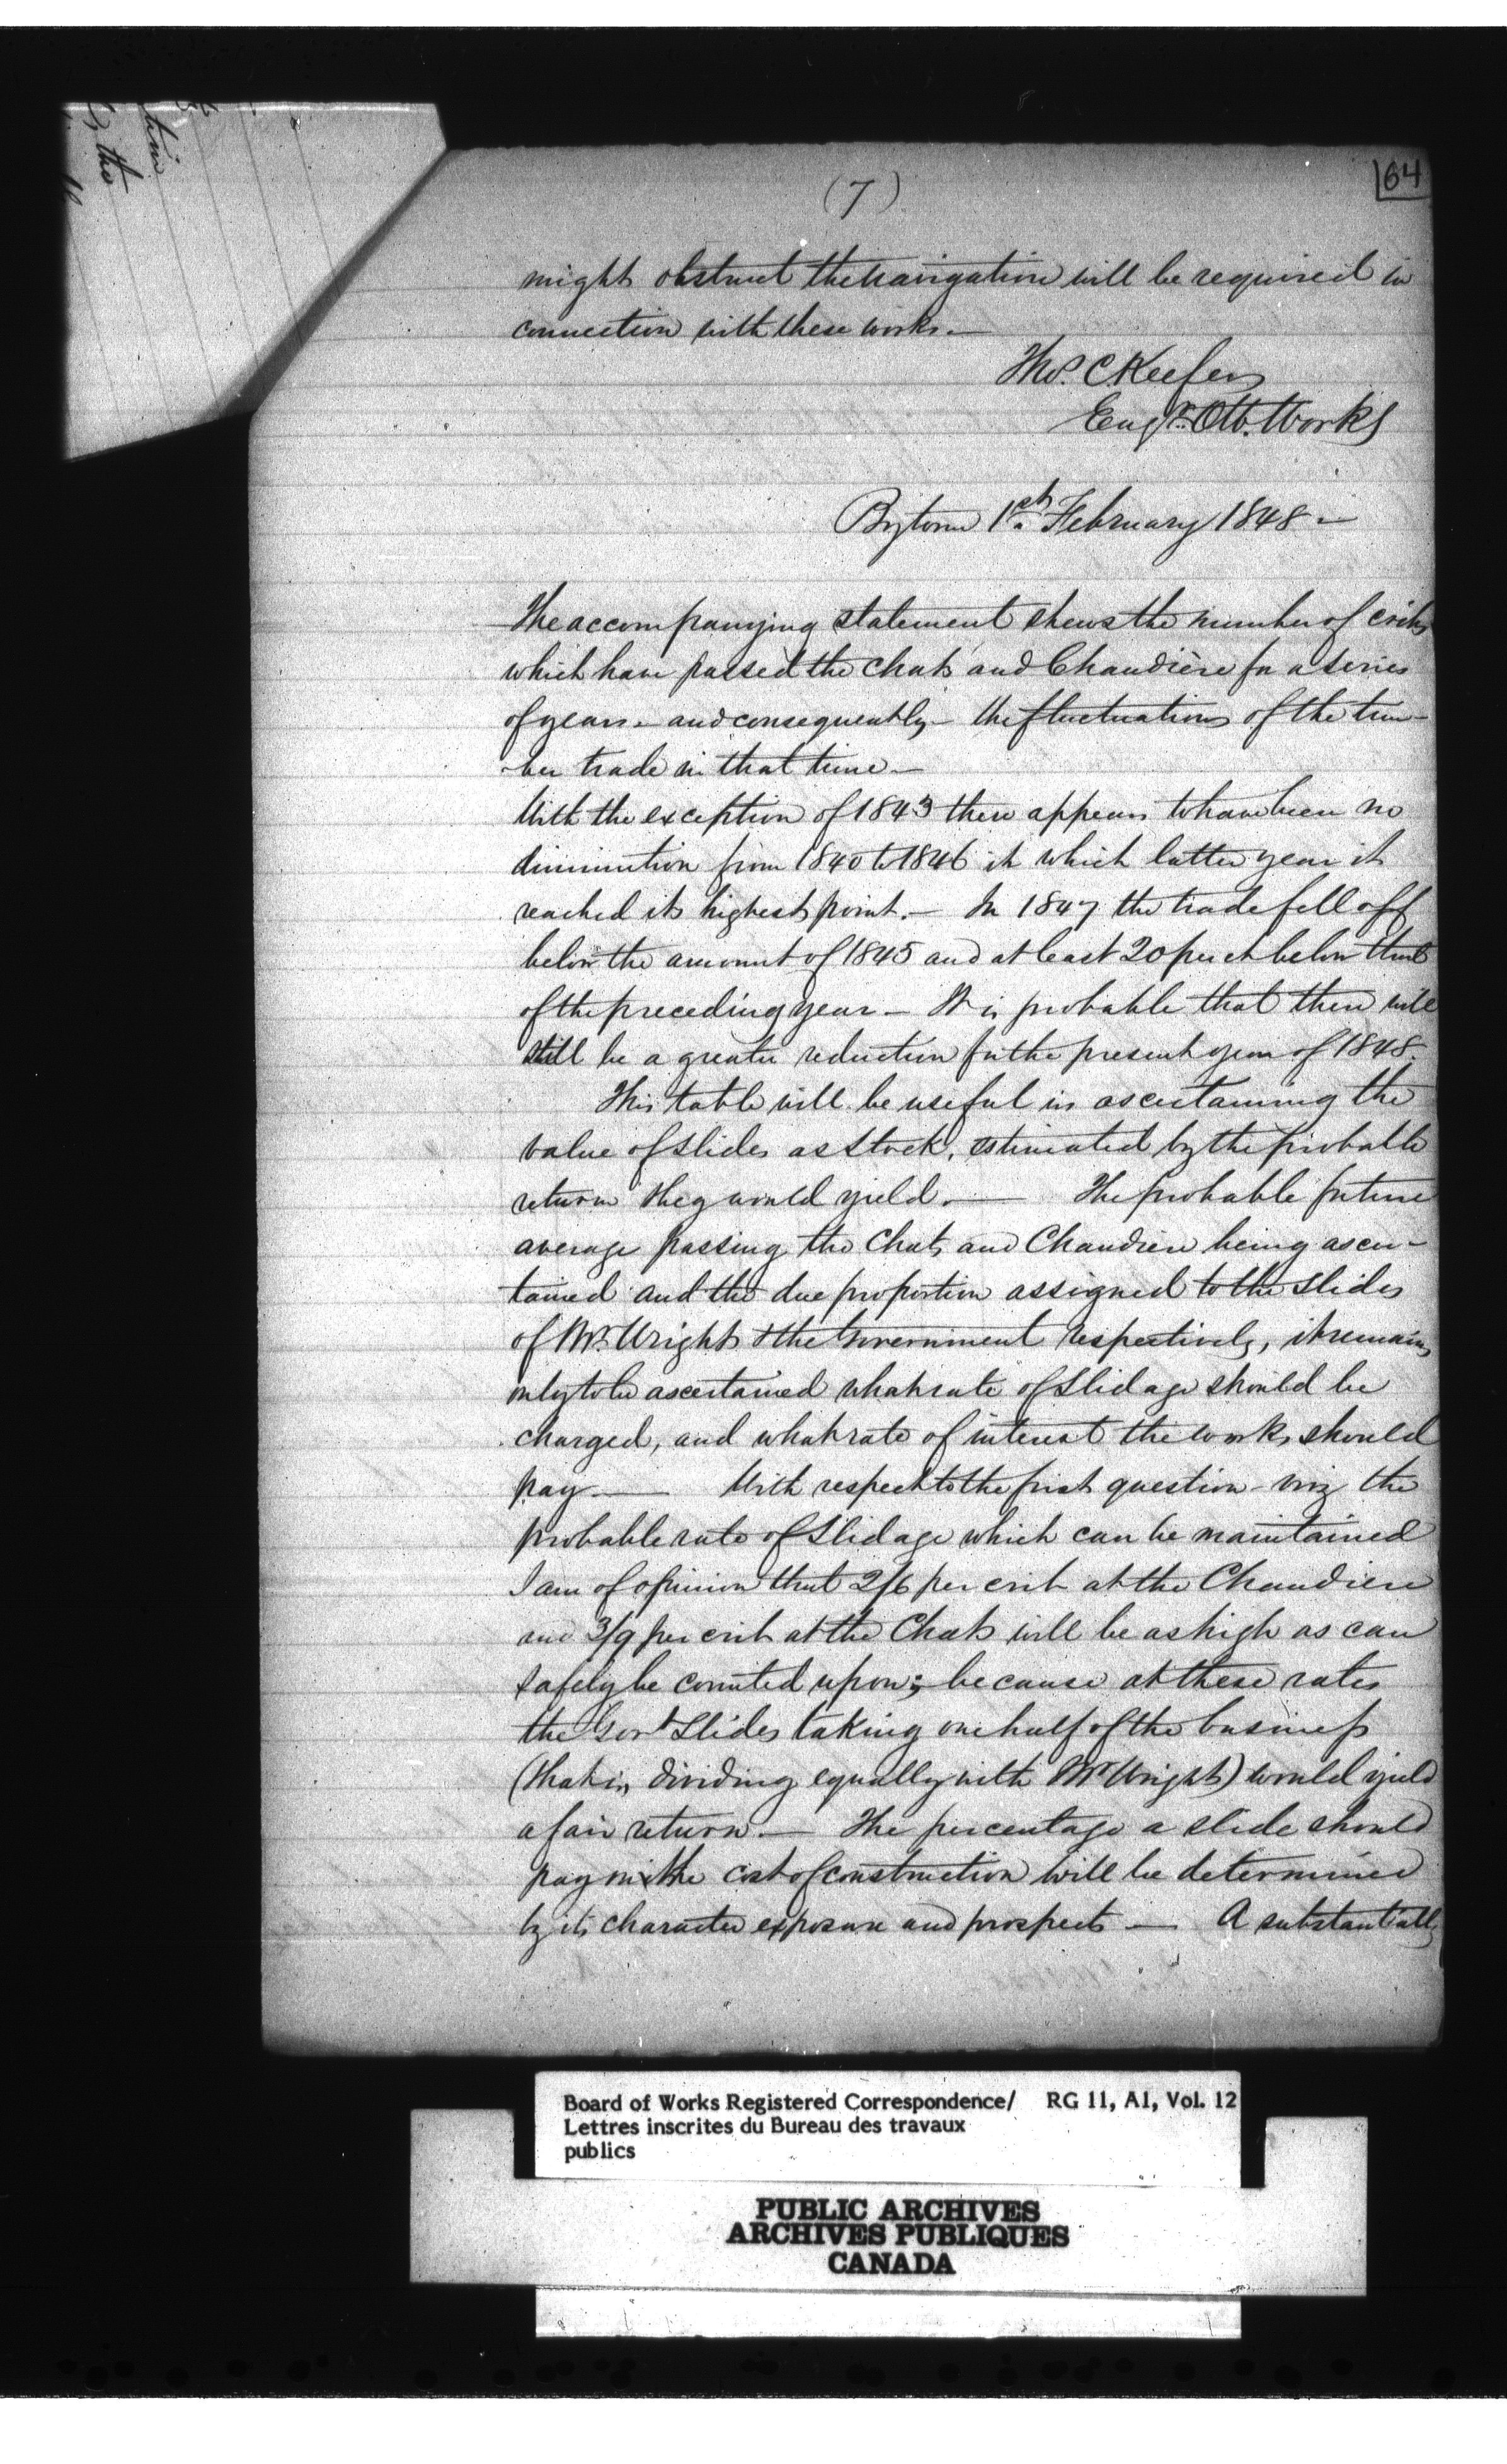 (7)
64
might obstruct the navigation will be required in
connection with these works.—
Thos. C Keefer
Engr. Ott. Works
Bytown 1st February 1848—
The accompanying statement shews the number of cribs
which have passed the Chats and Chaudière for a series
of years — and consequently — the fluctuations of the tim-
-ber trade in that time —
With the exception of 1843 there appears to have been no
diminution from 1840 to 1846 in which latter year it
reached its highest point. — In 1847 the trade fell off
below the amount of 1845 and at least 20 per ct below that
of the preceding year — It is probable that there will
still be a greater reduction for the present year of 1848.
This table will be useful in ascertaining the
value of slides as stock, estimated by the probable
return they would yield. — The probable future
average passing the Chats and Chaudiere being ascer-
tained and the due proportion assigned to the slides
of Mr. Wright & the Government respectively, it remains
only to be ascertained what rate of slidage should be
charged, and what rate of interest the works should
pay — With respect to the first question — viz the
probable rate of slidage which can be maintained
I am of opinion that 2/6 per crib at the Chaudiere
and 3/9 per crib at the Chats will be as high as can
safely be counted upon; because at these rates
the Govt Slides taking one half of the business
(that is, dividing equally with Mr Wright) would yield
a fair return. — The percentage a slide should
pay on the cost of construction will be determined
by its character exposure and prospects — A substantially
tim
the
Board of Works Registered Correspondence/ RG 11, A1, Vol. 12
Lettres inscrites du Bureau des travaux
publics
PUBLIC ARCHIVES
ARCHIVES PUBLIQUES
CANADA